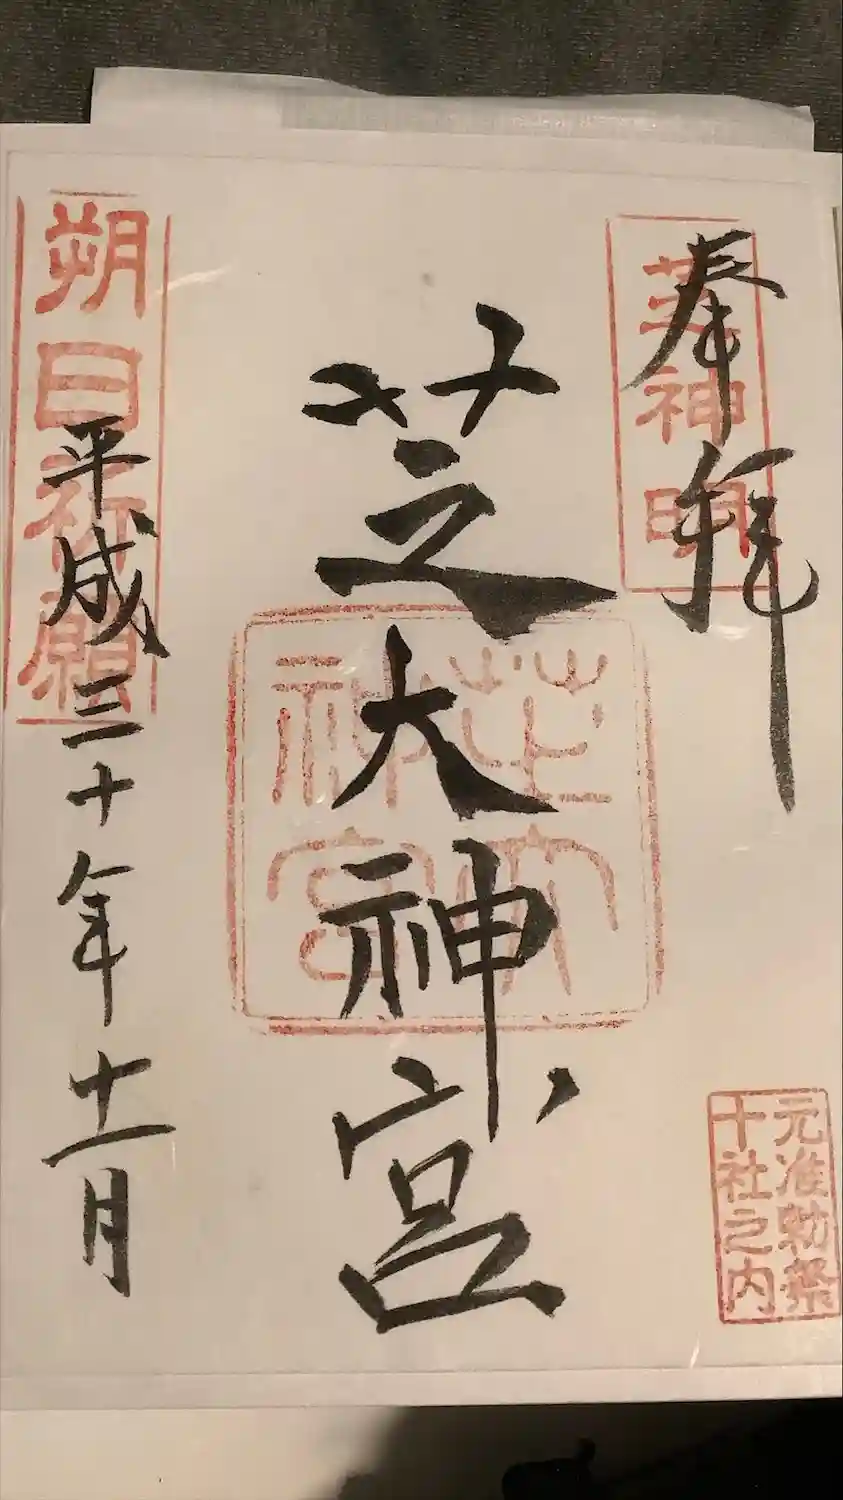 奉拝
芝神明
芝大神宮
芝大
神宮
元准勅祭
十社之内
朔日祈願
平成三十年十一月